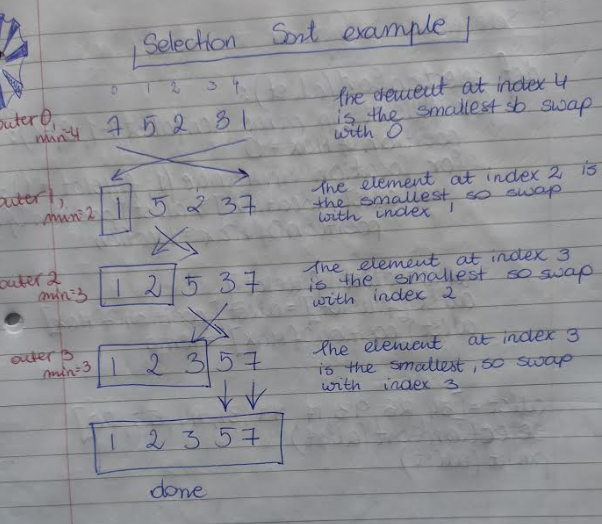 Selection Sort example
0 1 2 3 4
outer 0, min=4
7 5 2 3 1
The element at index 4
is the smallest so swap
with 0
outer 1, min=2
1 5 2 3 7
The element at index 2 is
the smallest, so swap
with index 1
outer 2 min=3
1 2 5 3 7
The element at index 3
is the smallest so swap
with index 2
outer 3 min=3
1 2 3 5 7
The element at index 3
is the smallest, so swap
with index 3
1 2 3 5 7
done